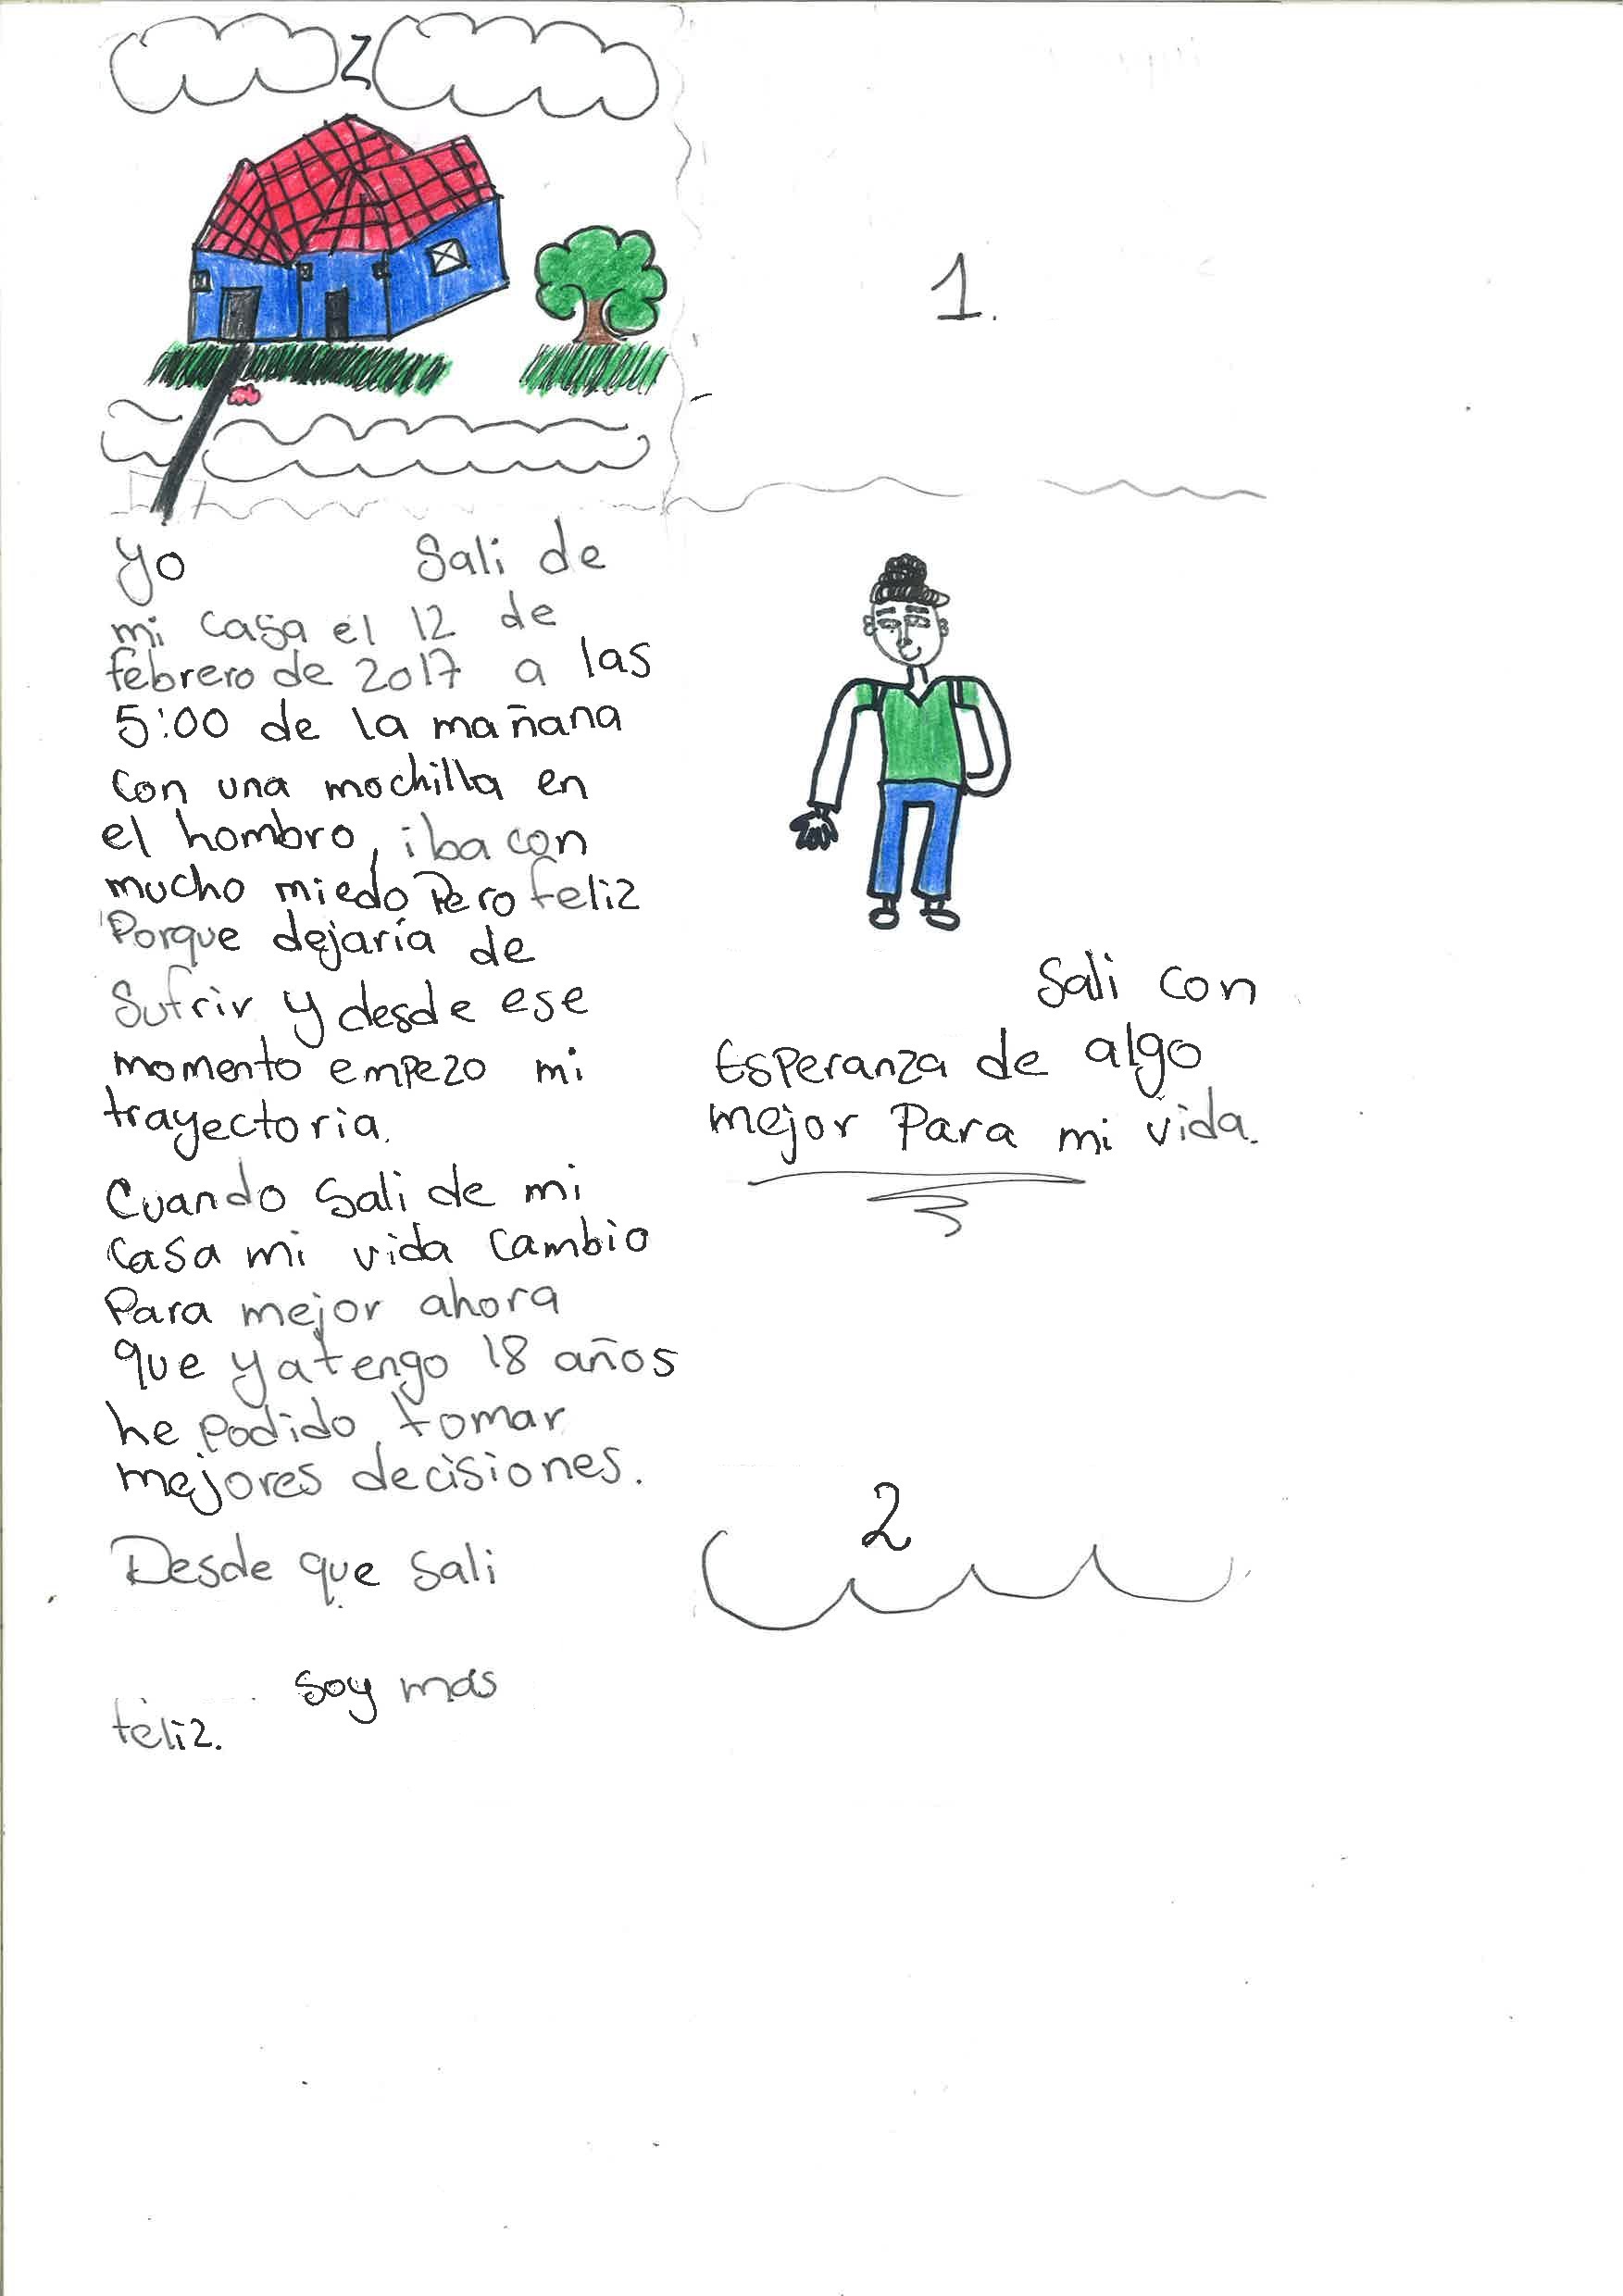 1.
yo Sali de
mi casa el 12 de
febrero de 2017 a las
5:00 de la mañana
con una mochilla en
el hombro, iba con
mucho miedo Pero feliz
Porque dejaría de
Sufrir y desde ese
momento empezo mi
trayectoria.
Cuando Sali de mi
casa mi vida cambio
Para mejor ahora
que ya tengo 18 años
he podido tomar
mejores decisiones.
Desde que sali
soy mas
feliz.
Sali con
Esperanza de algo
mejor Para mi vida.
2